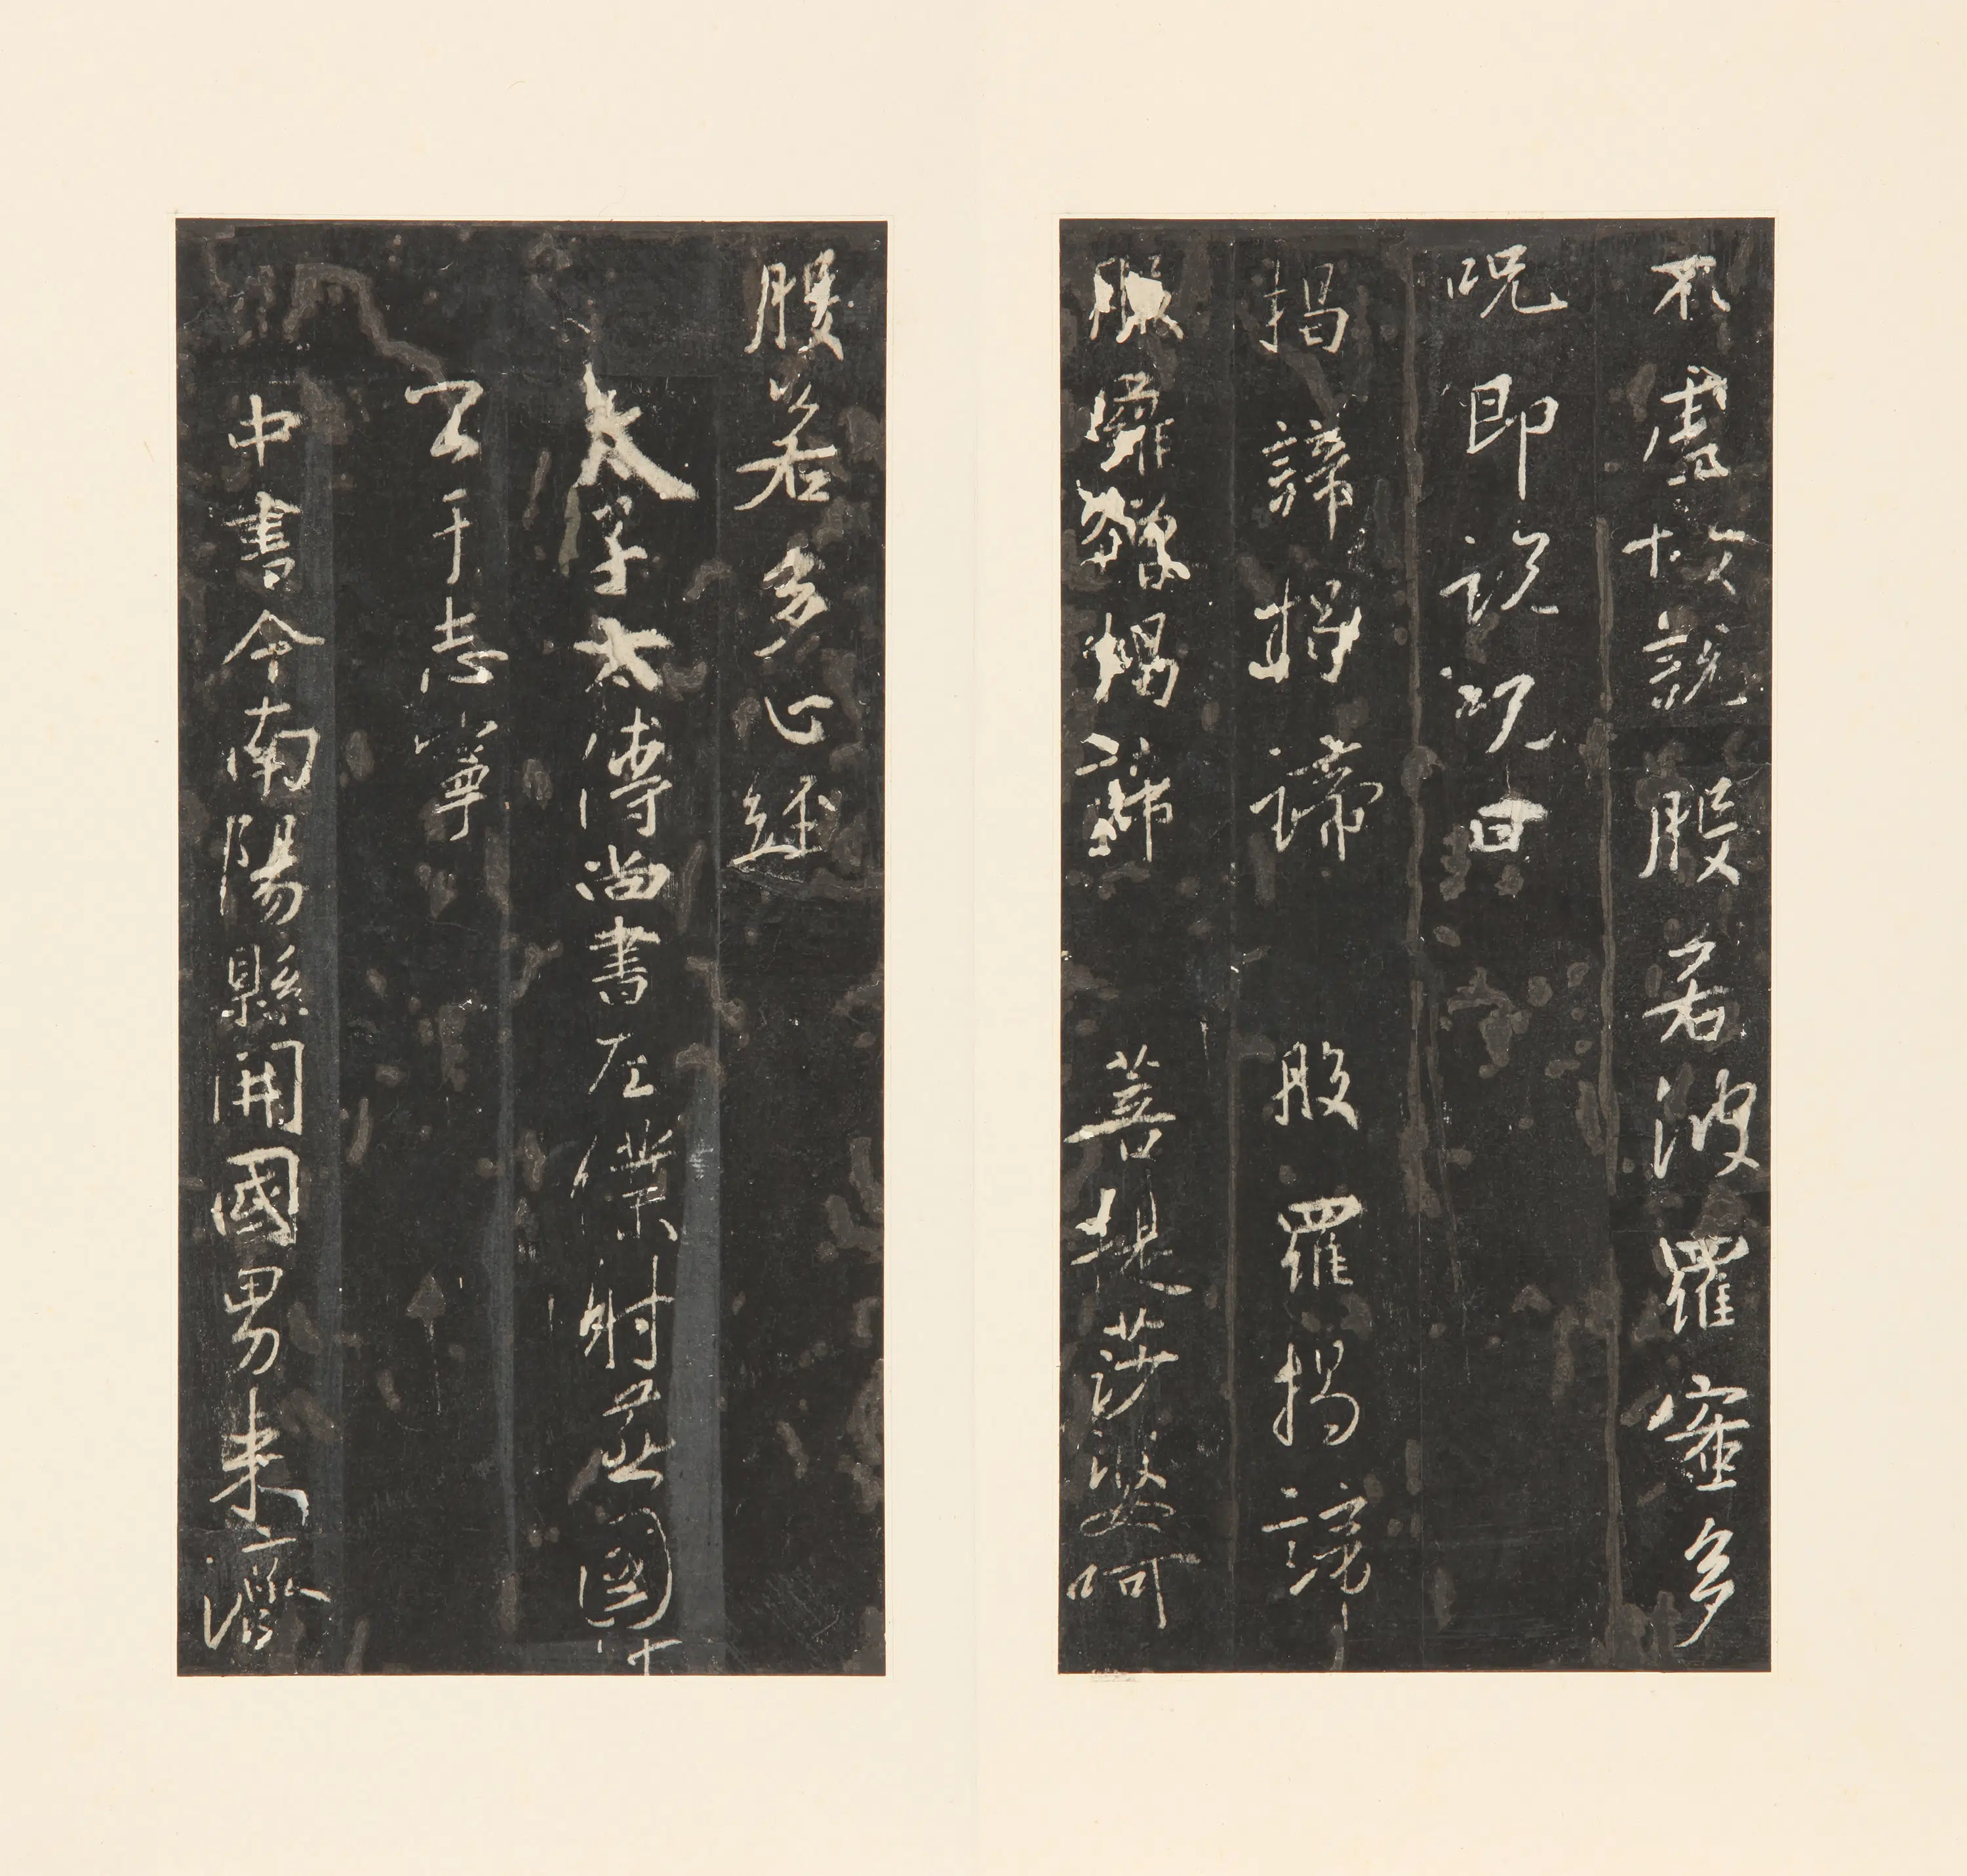 不虛故說般若波羅蜜多
呪即說呪曰
揭諦揭諦 般羅揭諦
般羅僧揭諦 菩提莎婆呵
般若多心經
太子太傅尚書左僕射燕國
公于志寧
中書令南陽縣開國男来濟